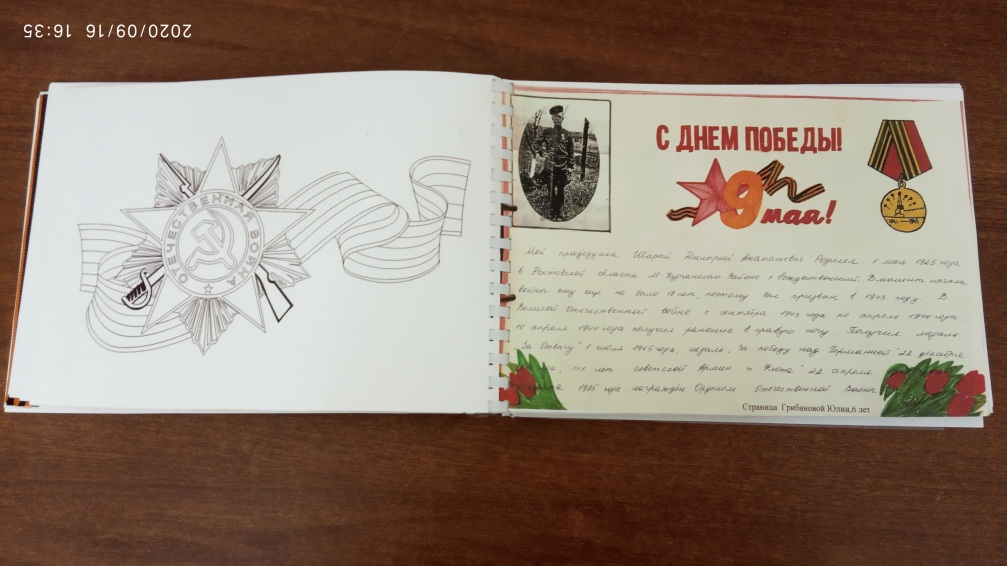 2020/09/16 16:35
ОТЕЧЕСТВЕННАЯ ВОЙНА
С ДНЕМ ПОБЕДЫ!
9 мая!
1941-1945
Мой прадедушка Шарай Дмитрий Анатольевич Родился 1 мая 1925 года
в Ростовской области М-Курганском Районе п. Рождественский. В момент начала
войны ему ещё не было 18 лет, поэтому был призван в 1943 году. В
Великой Отечественной войне с сентября 1943 года по апрель 1944 года.
10 апреля 1944 года получил ранение в правую ногу. Получил медаль
"За Отвагу" 1 июля 1945 года, медаль, За победу над Германией" 22 декабря
лет советской Армии и Флота" 22 апреля
1985 года награждён Орденом Отечественной Войны
Страница Грибановой Юлии, 6 лет